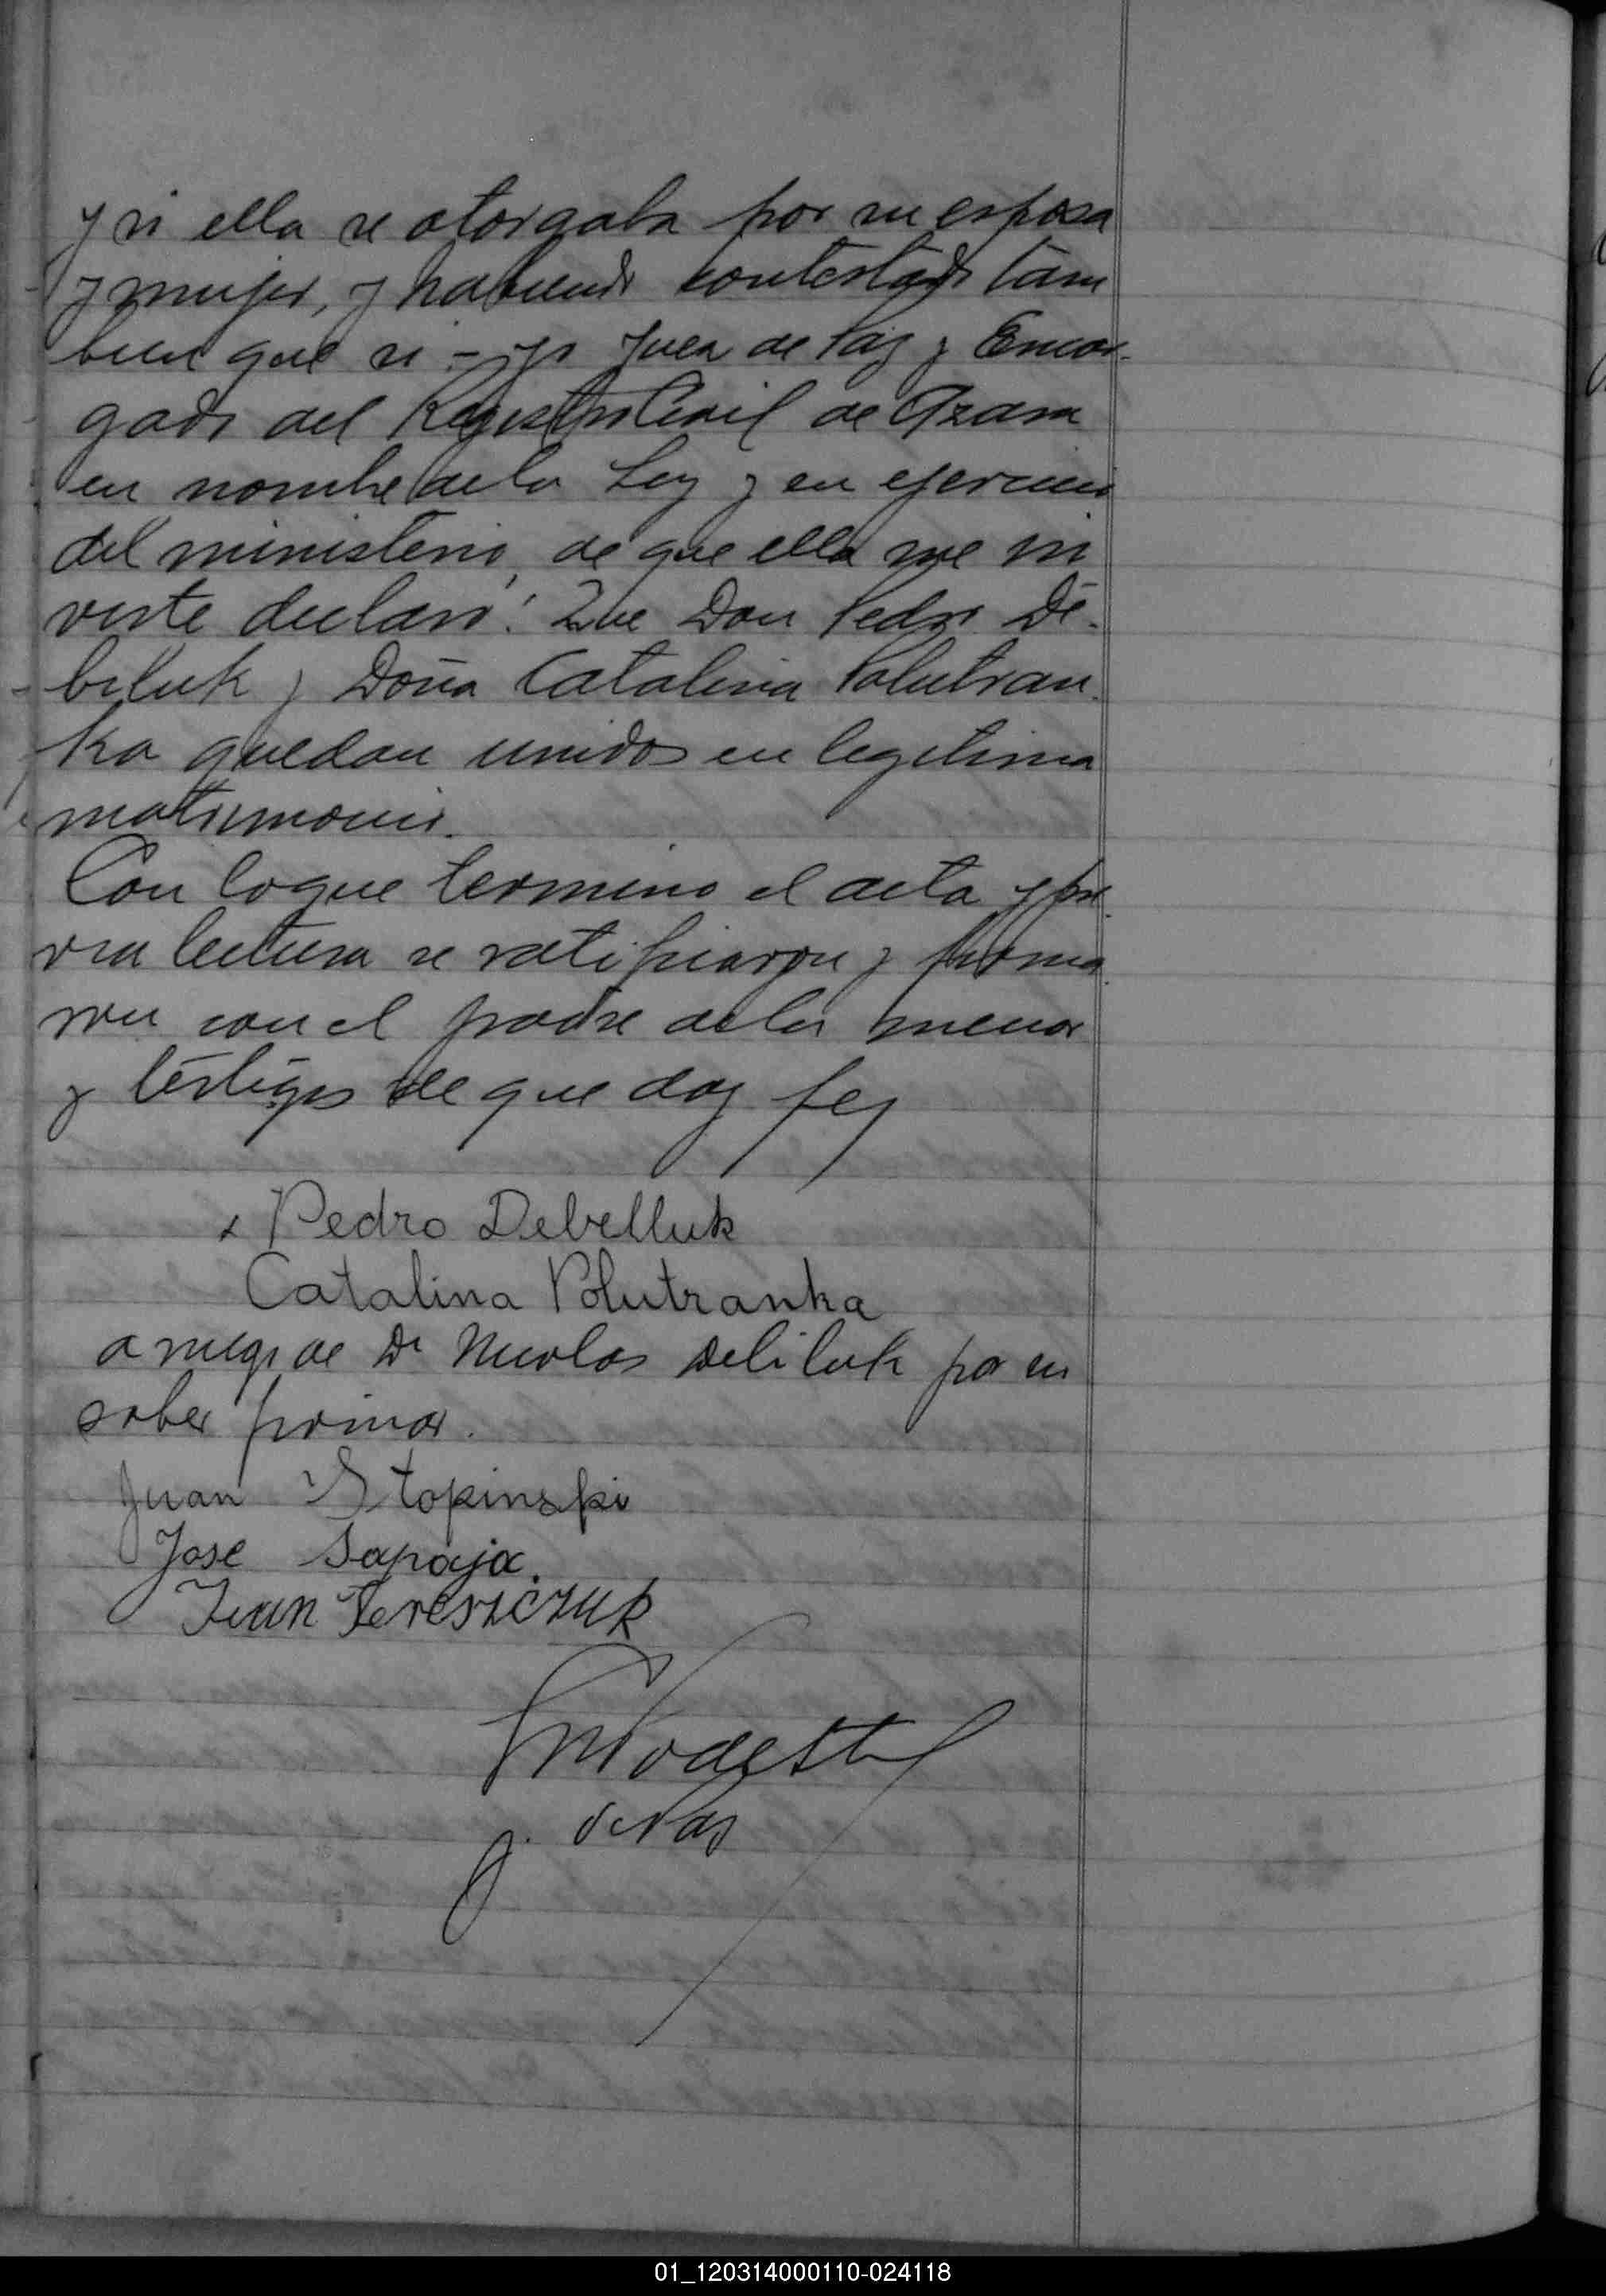 y si ella se otorgaba por su esposa
y mujer, y habiendo contestado tam
bien que si - yo Juez de Paz y Encar-
gado del Registro Civil de Azara
en nombre de la Ley y en ejercicio
del ministerio, de que ella me in
viste declaro: Que Don Pedro De-
beluk y Doña Catalina Polutran-
ka quedan unidos en legitimo
matrimonio.
Con lo que termino el acta y pre-
via lectura se ratificaron y firma-
ron con el padre de la menor
y testigos de que doy fey
x Pedro Debelluk
Catalina Polutranka
a ruego de Dn Nicolas Debiluk por no
saber firmar.
Juan Stopinski
Jose Sapaja.
Juan Tereszczuk
J. de Paz
01_120314000110-024118